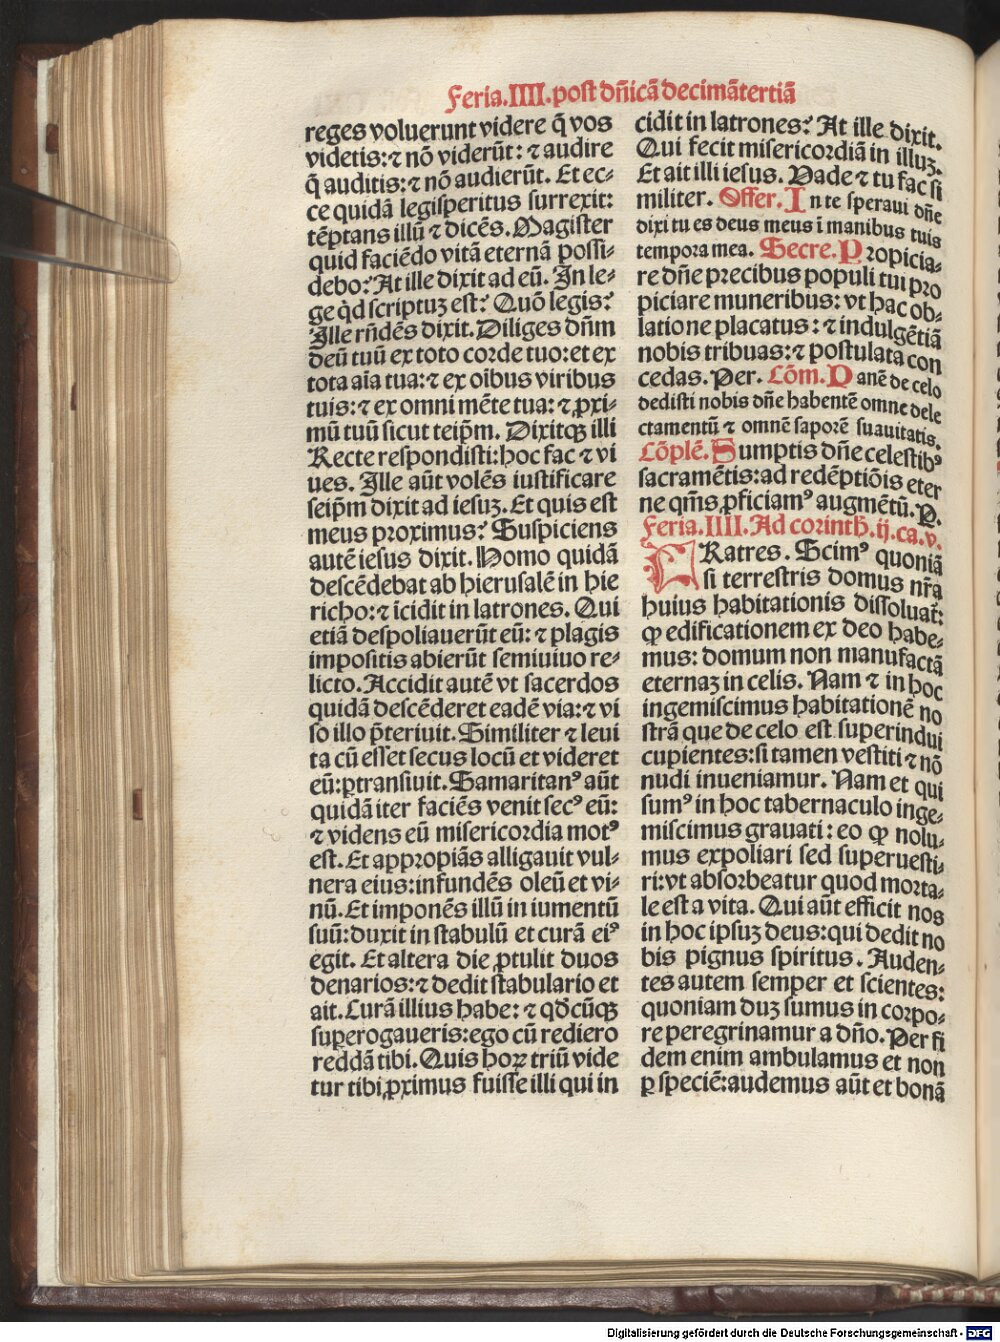 Feria.IIII.post dñicã decimãtertiã
reges voluerunt videre q̃ vos
videtis:⁊ nõ viderũt: ⁊ audire
q̃ auditis:⁊ nõ audierũt. Et ec⸗
ce quidã legisperitus surrexit:
tẽptans illũ ⁊ dicẽs. Magister
quid faciẽdo vitã eternã possi⸗
debo? At ille dixit ad eũ. In le⸗
ge qd̓ scriptuꝫ est? Quõ legis?
Ille rñdẽs dixit. Diliges dñm
deũ tuũ ex toto corde tuo: et ex
tota aĩa tua:⁊ ex oĩbus viribus
tuis:⁊ ex omni mẽte tua: ⁊ ꝓxi⸗
mũ tuũ sicut teip̃m. Dixitqꝫ illi
Recte respondisti: hoc fac ⁊ vi
ues. Ille aũt volẽs iustificare
seip̃m dixit ad iesuꝫ. Et quis est
meus proximus? Suspiciens
autẽ iesus dixit. Homo quidã
descẽdebat ab hierusalẽ in hie
richo:⁊ ĩcidit in latrones. Qui
etiã despoliauerũt eũ: ⁊ plagis
impositis abierũt semiuiuo re⸗
licto. Accidit autẽ vt sacerdos
quidã descẽderet eadẽ via:⁊ vi
so illo p̃teriuit. Similiter ⁊ leui
ta cũ esset secus locũ et videret
eũ:ꝑtransiuit. Samaritanꝰ aũt
quidã iter faciẽs venit secꝰ eũ:
⁊ videns eũ misericordia motꝰ
est. Et appropiãs alligauit vul⸗
nera eius: infundẽs oleũ et vi⸗
nũ. Et imponẽs illũ in iumentũ
suũ: duxit in stabulũ et curã eiꝰ
egit. Et altera die ꝓtulit duos
denarios:⁊ dedit stabulario et
ait. Curã illius habe: ⁊ qd̓cũqꝫ
superogaueris: ego cũ rediero
reddã tibi. Quis hoꝝ triũ vide
tur tibi ꝓximus fuisse illi qui in
cidit in latrones? At ille dixit.
Qui fecit misericordiã in illuꝫ.
Et ait illi iesus. Vade ⁊ tu fac si
militer. Offer. In te speraui dñe
dixi tu es deus meus ĩ manibus tuis
tempora mea. Secre. Propicia⸗
re dñe precibus populi tui pro
piciare muneribus: vt hac ob⸗
latione placatus: ⁊ indulgẽtiã
nobis tribuas:⁊ postulata con
cedas. Per. Cõm. Panẽ de celo
dedisti nobis dñe habentẽ omne dele
ctamentũ ⁊ omnẽ saporẽ suauitatis.
Cõplẽ. Sumptis dñe celestibꝰ
sacramẽtis: ad redẽptiõis eter
ne qm̃s ꝓficiamꝰ augmẽtũ. P.
Feria.IIII. Ad corinth. ij.ca.v.
FRatres. Scimꝰ quoniã
si terrestris domus nr̃a
huius habitationis dissoluat᷑:
ꝙ edificationem ex deo habe⸗
mus: domum non manufactã
eternaꝫ in celis. Nam ⁊ in hoc
ingemiscimus habitationẽ no
strã que de celo est superindui
cupientes: si tamen vestiti ⁊ nõ
nudi inueniamur. Nam et qui
sumꝰ in hoc tabernaculo inge⸗
miscimus grauati: eo ꝙ nolu⸗
mus expoliari sed superuesti⸗
ri: vt absorbeatur quod morta⸗
le est a vita. Qui aũt efficit nos
in hoc ipsuꝫ deus: qui dedit no
bis pignus spiritus. Auden⸗
tes autem semper et scientes:
quoniam duꝫ sumus in corpo⸗
re peregrinamur a dño. Per fi
dem enim ambulamus et non
ꝑ speciẽ: audemus aũt et bonã
Digitalisierung gefördert durch die Deutsche Forschungsgemeinschaft - DFG